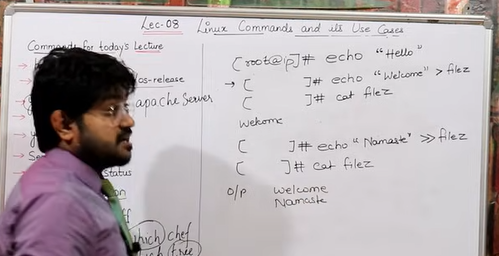 Lec-08
Linux Commands and its Use Cases
Commands for today's Lecture
/os-release
apache Server
status
which chef
tree
[root@ip]# echo "Hello"
→ [ ]# echo "Welcome" > filez
[ ]# cat filez
Welcome
[ ]# echo "Namaste" >> filez
[ ]# cat filez
O/P Welcome
Namaste